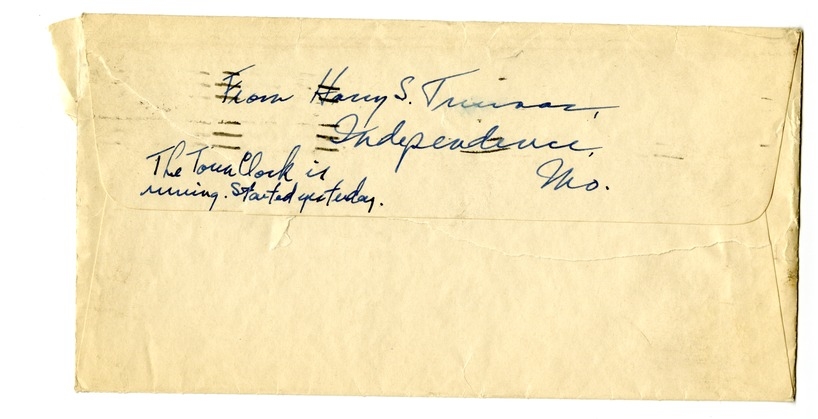 From Harry S. Truman,
Independence,
Mo.
The Town Clock is
running. Started yesterday.